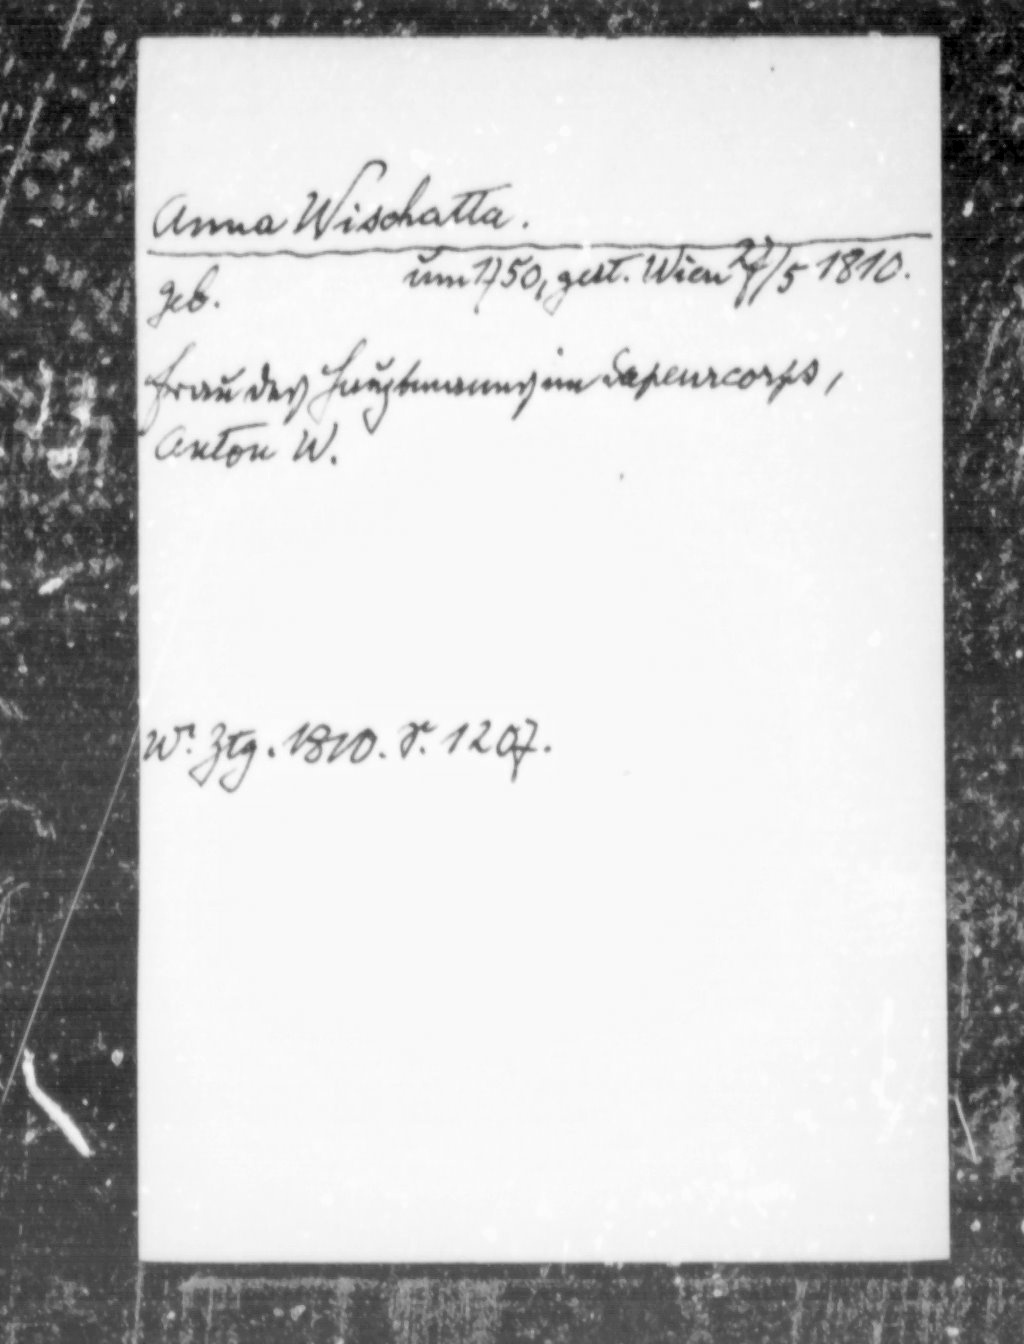 Anna Wischatta.
geb. um 1750, gest. Wien 27/5 1810.
Frau des Hauptmanns im Sapeurcorps,
Anton W.
Wr. Ztg. 1810. S. 1207.